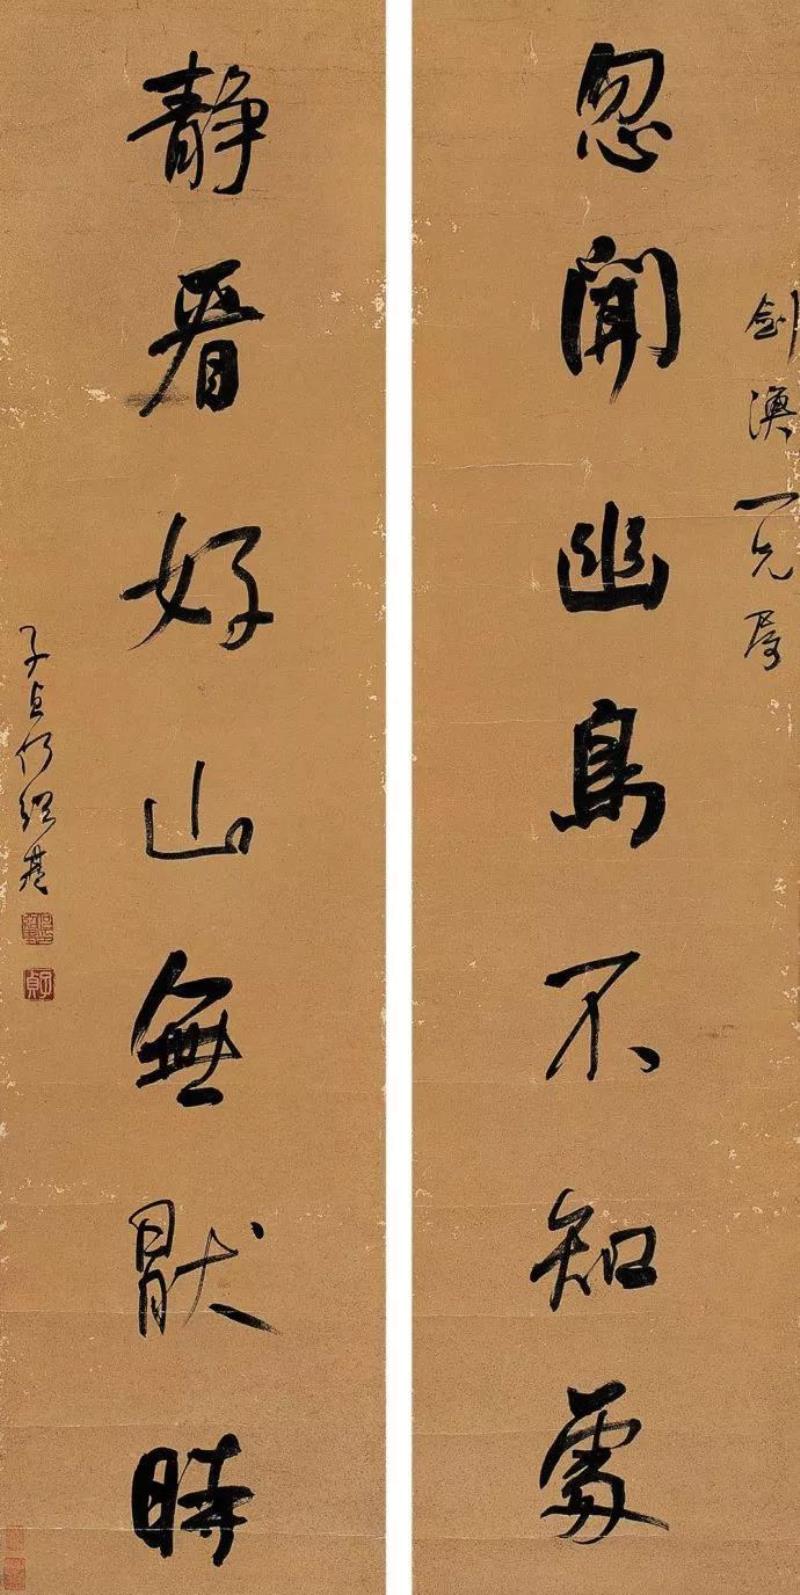 劍潭一兄屬
忽聞幽鳥不知處
靜看好山無猒時
子貞何紹基
子貞